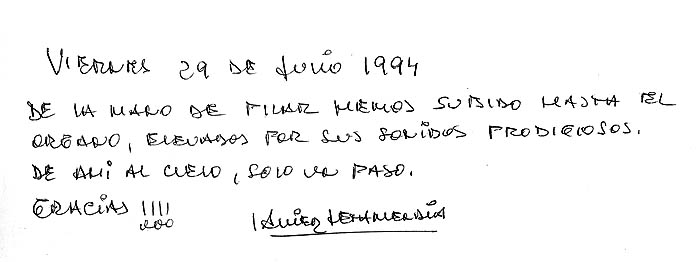 VIERNES 29 DE JULIO 1994
DE LA MANO DE PILAR HEMOS SUBIDO HASTA EL
ORGANO, ELEVADOS POR SUS SONIDOS PRODIGIOSOS.
DE AHI AL CIELO, SOLO UN PASO.
GRACIAS !!!!
JAVIER